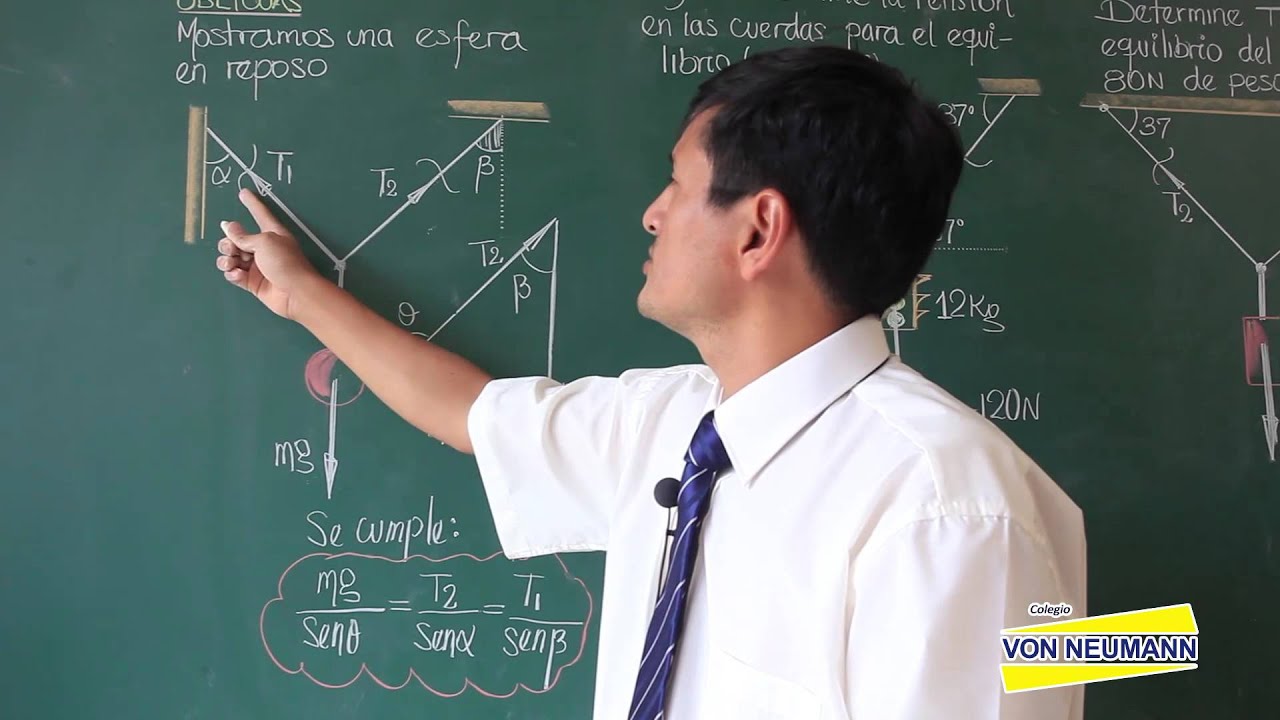 OBLICUAS
Mostramos una esfera
en reposo
α
T1
T2
β
T2
β
θ
mg
Se cumple:
mg/senθ = T2/senα = T1/senβ
la tensión
en las cuerdas para el equi-
librio
37°
7°
12Kg
120N
Determine T
equilibrio del
80N de peso
37
T2
Colegio
VON NEUMANN